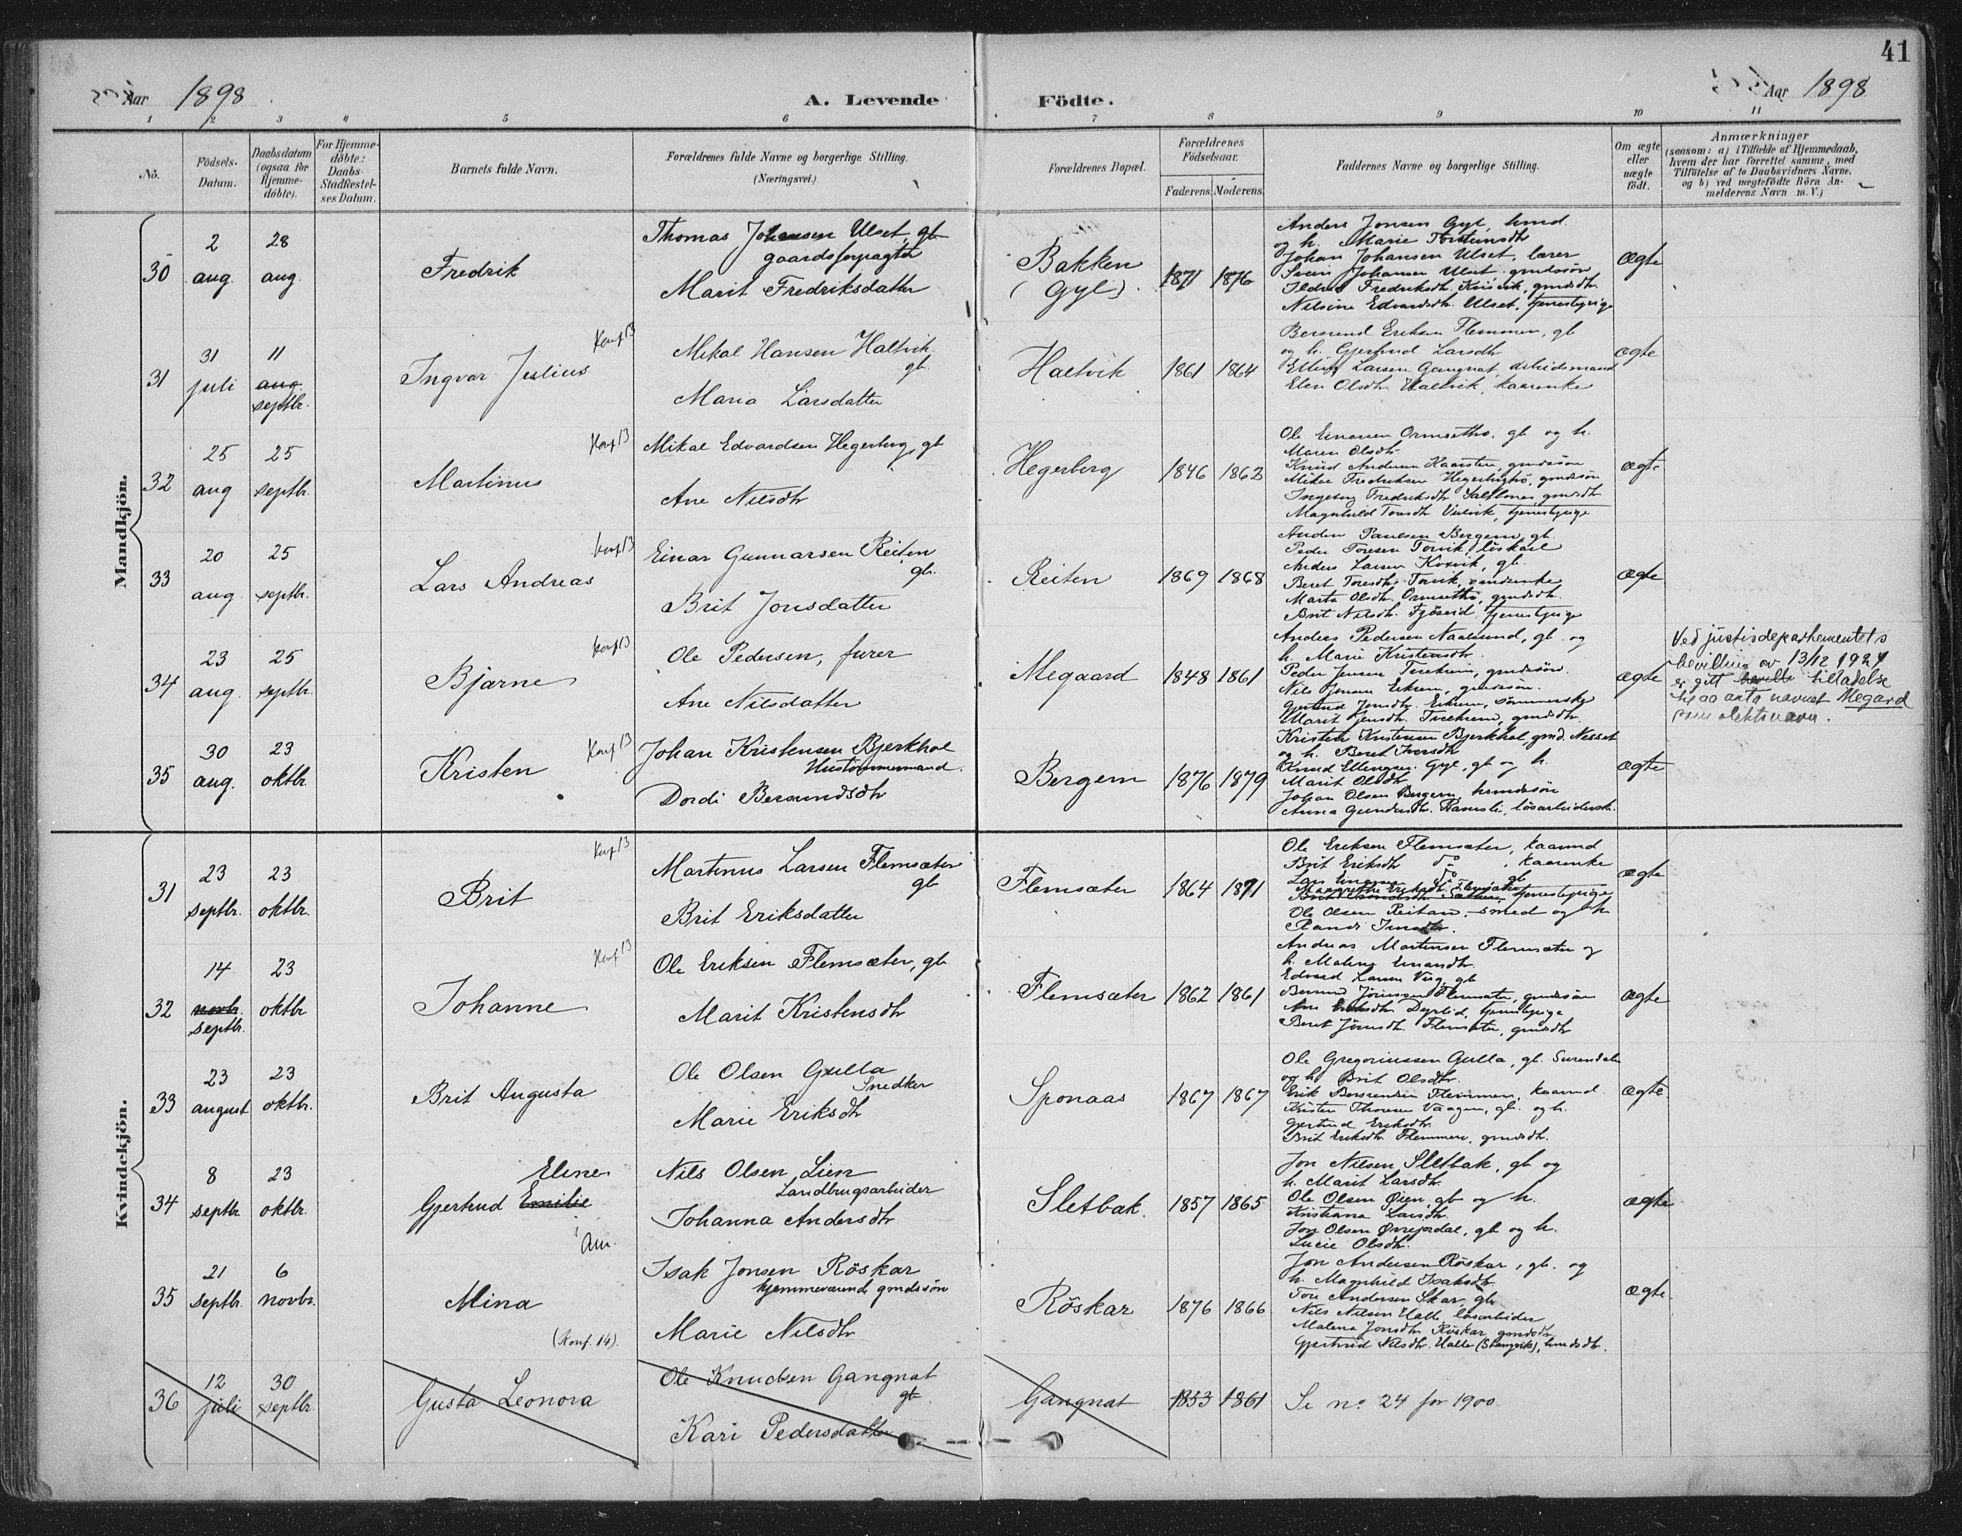 41
Aar 1898
A. Levende Födte.
Aar 1898
1 2 3 4 5 6 7 8 9 10 11
No.
Födsels-Datum.
Daabsdatum (ogsaa for Hjemme-döbte).
For Hjemme-döbte: Daabs-Stadfæstel-ses Datum.
Barnets fulde Navn.
Forældrenes fulde Navne og borgerlige Stilling.
(Næringsvei.)
Forældrenes Bopæl.
Forældrenes Födselsaar.
Faderens. Moderens.
Faddernes Navne og borgerlige Stilling.
Om ægte eller uægte födt.
Anmærkninger
(saasom: a) i Tilfælde af Hjemmedaab, hvem der har forrettet samme, med Tilföielse af to Daabsvidners Navne, og b) ved uægtefödte Börn An-melderens Navn m. V.)
Mandkjön.
30
2 aug.
28 aug.
Fredrik
Thomas Johansen Ulset, gb
gaardsforpagter
Marit Fredriksdatter
Bakken
(Gyl).
1871 1876
Anders Jonsen Gyl, kmd.
og h. Marie Torsteinsdtr
Johan Johansen Ulset, lærer
Svein Johansen Ulset, gmdssön
Ildri Fredriksdtr. Krisvik, gmdsdtr.
Nilsine Edvardsdtr. Ulset, tjenestepige
ægte
31
31 juli
11 aug. septbr.
Ingvar Julius
Konf 13
Mikal Hansen Haltvik
gb.
Maria Larsdatter
Haltvik
1861 1864
Bersvend Eriksen Flemmen, gb
og h. Gjertrud Larsdtr
Elling Larsen Gangnat, arbeidsmand
Elen Olsdtr. Haltvik, kaarenke
ægte
32
25 aug
25 septbr.
Martinus
Konf 13
Mikal Edvardsen Hegerberg, gb
Ane Nilsdtr
Hegerberg
1846 1862
Ole Einarsen Ormsethö, gb og h.
Maren Olsdtr.
Knud Andersen Haarsten, gmdssön
Mikal Fredriksen Hegerberghö, gmdssön
Ingeborg Fredriksdtr. Saltbones, gmdsdtr
Magnhild Toresdtr. Vulvik, tjenestepige
ægte
33
20 aug.
25 septbr.
Lars Andreas
konf 13
Einar Gunnarsen Reiten
gb.
Brit Jonsdatter
Reiten
1869 1868
Anders Paulsen Bergem, gb.
Peder Toresen Torvik, löskarl
Anders Larsen Koxvik, gb.
Beret Toresdtr. Torvik, gmdsenke
Marta Olsdtr. Ormsethö, gmdsdtr.
Brit Nilsdtr. Fjöseid, tjenestepige
ægte
34
23 aug.
25 septbr.
Bjarne
Konf 13
Ole Pedersen, furer
Ane Nilsdatter
Megaard
1848 1861
Anders Pedersen Naalsund, gb. og
h. Marie Kristensdtr.
Peder Jensen Tverheim, gmdssön.
Nils Jonsen Eikrem, gmdssön.
Gjertrud Jonsdtr. Eikrem, sömmerske
Marit Jensdtr. Tverheim, gmdsdtr.
ægte
Ved justisdepartementets
bevilling av 13/12 1927
er gitt tilladelse
til aa anta navnet Megard
som slektsnavn.
35
30 aug.
23 oktbr.
Kristen
Konf 13
Johan Kristensen Bjerkhol
Hustömmermand
Dordi Bersvendsdtr
Bergem
1876 1879
Kristen Kristensen Bjerkhol, gmd. Nesset
og h. Beret Iversdtr
Knud Ellingsen Gyl, gb og h.
Marit Olsdtr
Johan Olsen Bergem, kmdssön
Anna Gundersdtr. Ramsli, lösarbeiderske.
ægte
Kvindekjön.
31
23 septbr.
23 oktbr.
Brit
Konf 13
Martinus Larsen Flemsæter
gb
Brit Eriksdatter
Flemsæter
1864 1871
Ole Eriksen Flemsæter, kaarmd
Brit Eriksdtr do , kaarenke
Lars Einarsen do gb
Margrethe Eriksdtr. Flemsæter, tjenestepige
Ole Olsen Reitan, smed og h
Randi Imsdtr.
ægte
32
14 novbr. septbr.
23 oktbr
Johanne
Konf 13
Ole Eriksen Flemsæter, gb
Marit Kristensdtr
Flemsæter
1862 1861
Andreas Mortensen Flemsæter og
h. Malene Einarsdtr.
Edvard Larsen Vaag, gb
Bersvend Jörensen Flemsæter, gmdssön
Ane Eriksdtr Dyrlid, tjenestepige
Beret Jörensdtr. Flemsæter, gmdsdtr
ægte
33
23 august
23 oktbr.
Brit Augusta
Ole Olsen Gulla
Snedker
Marie Eriksdtr
Sponaas
1867 1867
Ole Gregoriussen Gulla, gb. Surendalen
og h. Brit Olsdtr.
Erik Bersvendsen Flemmen, kaarmd.
Kristen Thoresen Vaagen, gb. og h.
Gjertrud Eriksdtr.
Brit Eriksdtr. Flemmen, gmdsdtr.
ægte
34
8 septbr
23 oktbr.
Gjertrud Emilie Eline
Nils Olsen Lien
Landbrugsarbeider
Johanna Andersdtr
Sletbak.
1857 1865
Jon Nilsen Sletbak, gb og
h. Marit Larsdtr.
Ole Olsen Øien, gb og h.
Kristiana Larsdtr.
Jon Olsen Övrejordal, gb og h.
Lucie Olsdtr.
ægte
35
21 septbr.
6 novbr.
Am.
Mina
(Konf. 14).
Isak Jonsen Röskar
hjemmeværende gmdssön
Marie Nilsdtr
Röskar
1876 1866
Jon Andersen Röskar, gb. og
h. Magnhild Isaksdtr.
Tore Andersen Skar, gb
Nils Nilsen Halle, lösarbeider
Malena Jonsdtr. Röskar, gmdsdtr.
Gjertrud Nilsdtr. Halle (Stangvik), kmdsdtr.
ægte
36
12 juli
30 septbr.
Gusta Leonora
Ole Knudsen Gangnat
gb
Kari Pedersdatter
Gangnat
1853 1861
Se no 24 for 1900.